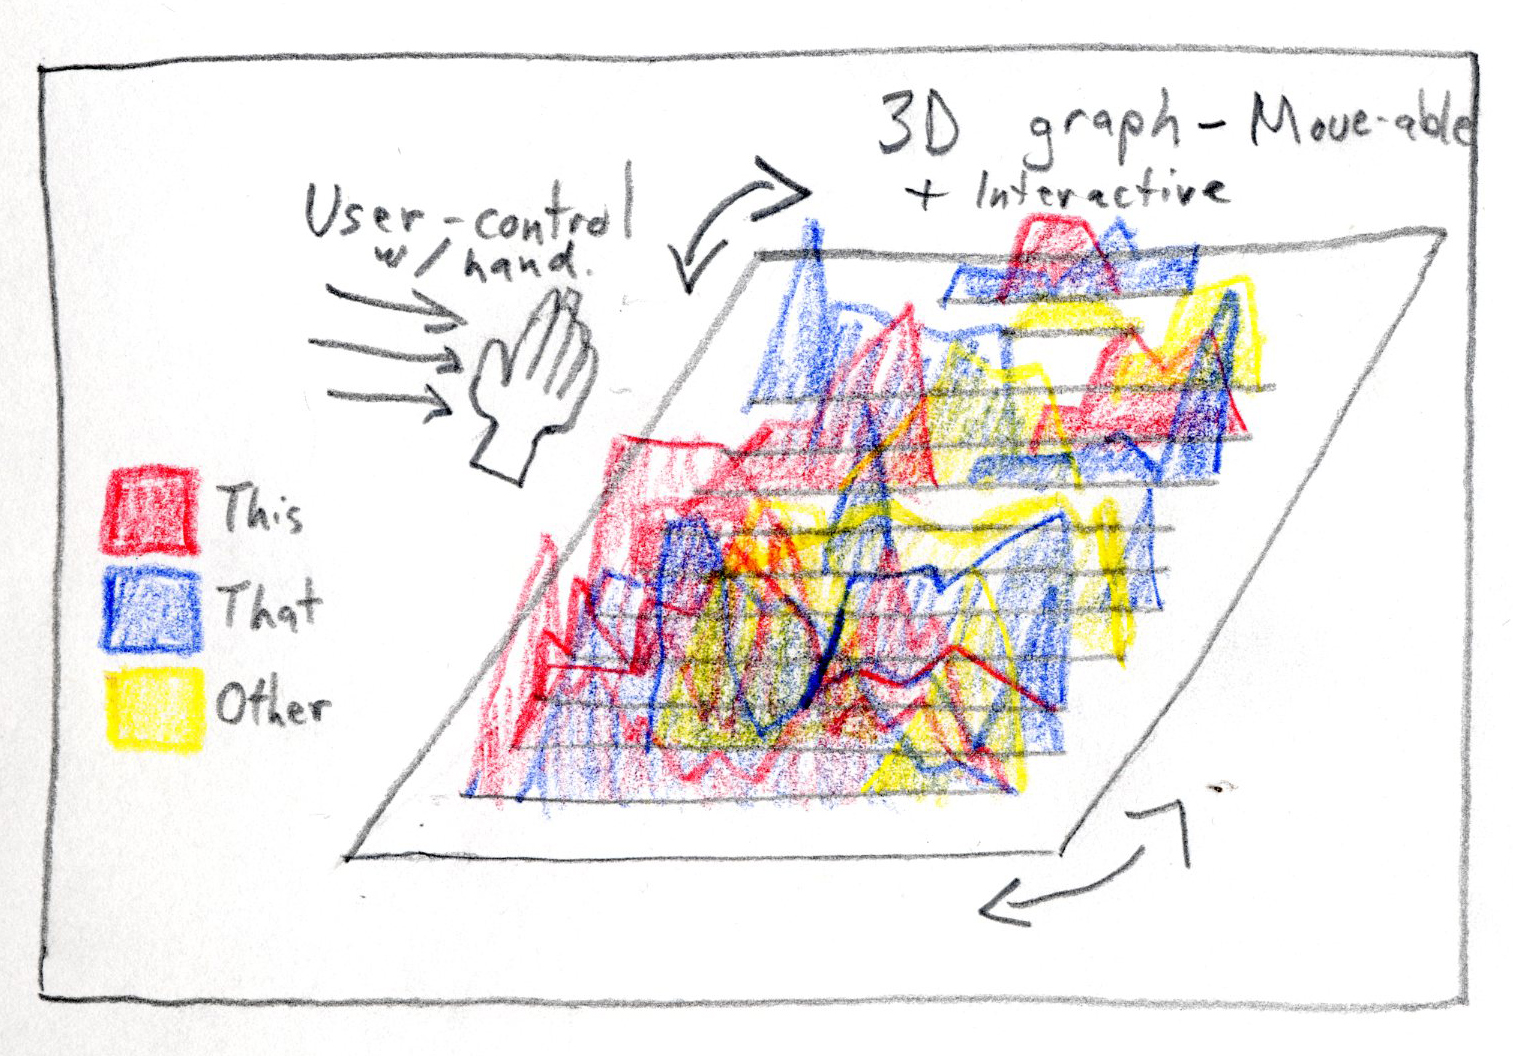 3D graph - Move-able
+ Interactive
User-control
w/ hand.
This
That
Other